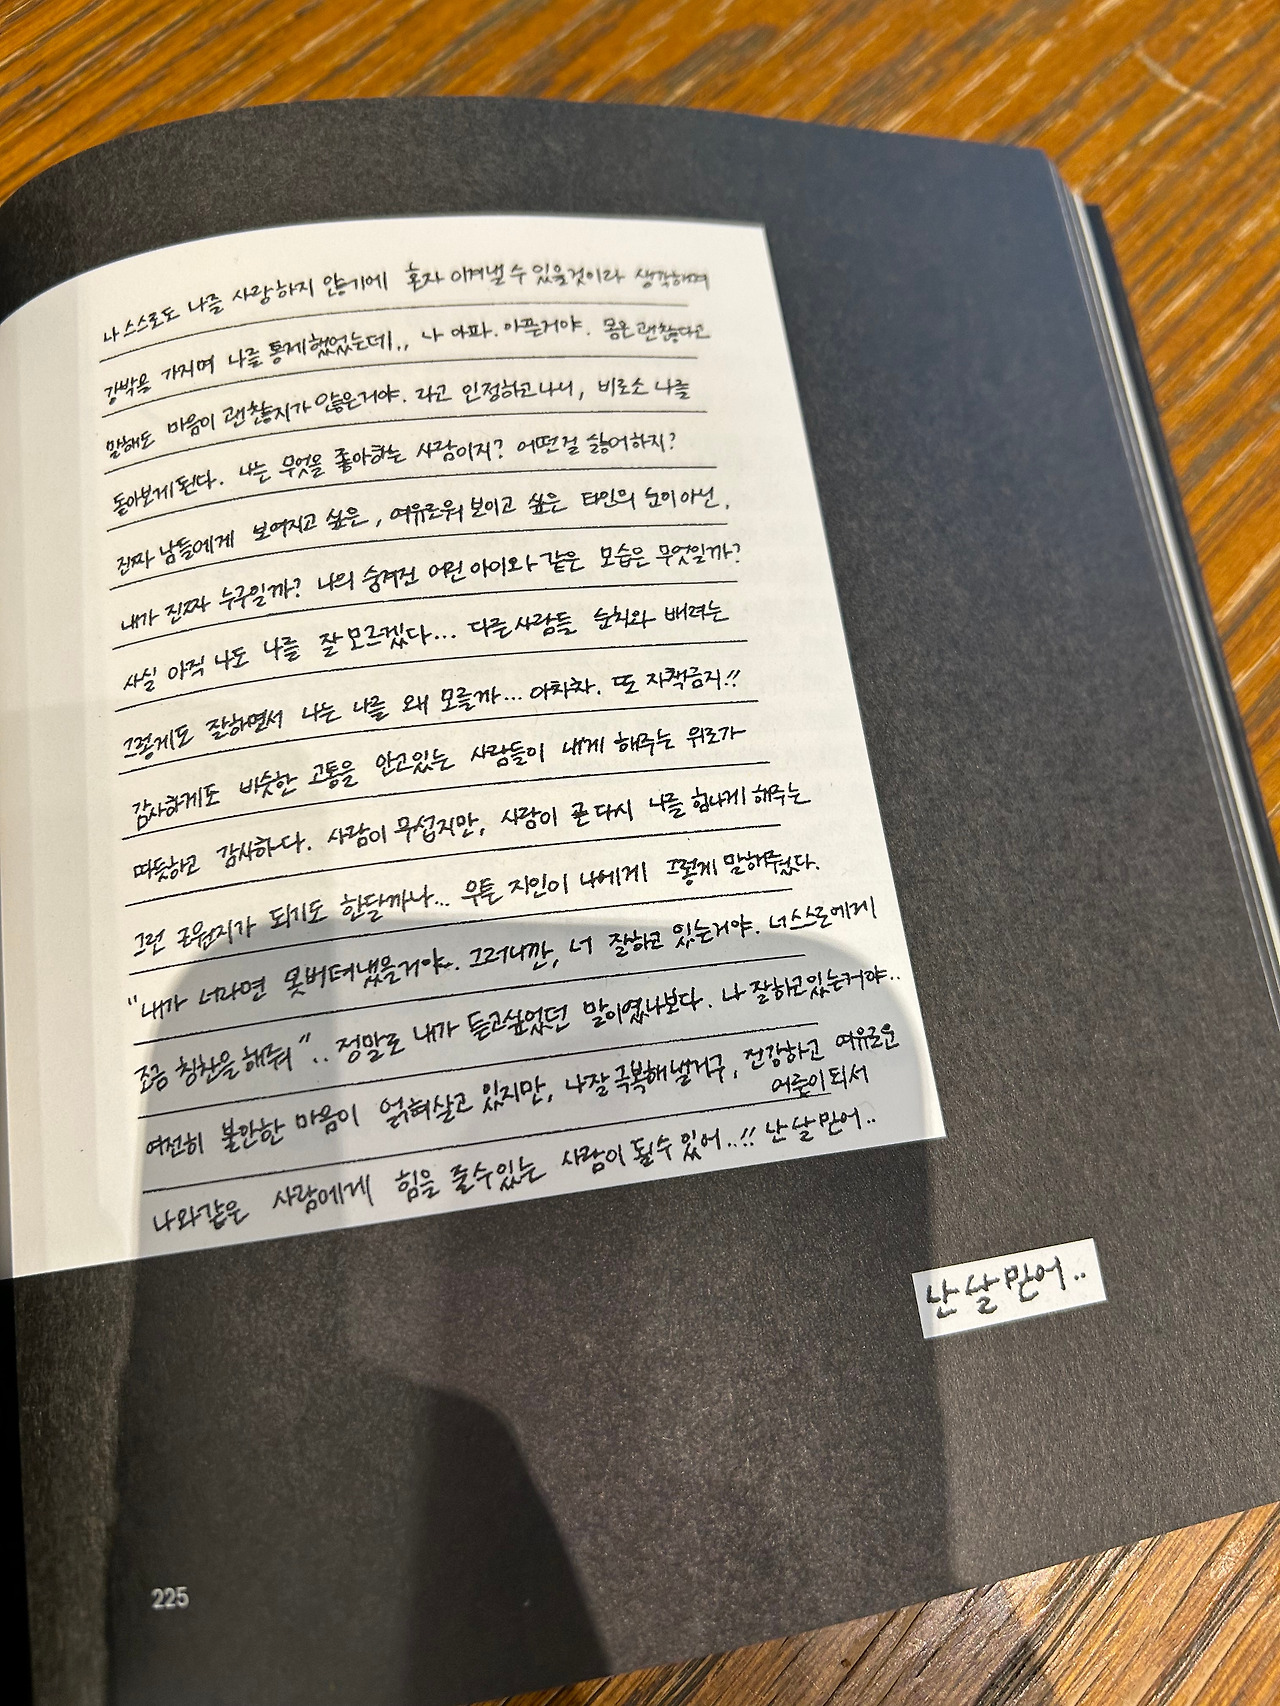 나 스스로도 나를 사랑하지 않기에 혼자 이겨낼 수 있을것이라 생각해며
강박을 가지며 나를 통제했었는데.. 나 아파. 아픈거야. 몸은 괜찮다고
말해도 마음이 괜찮지가 않은거야. 라고 인정하고나니, 비로소 나를
돌아보게 된다. 나는 무엇을 좋아하는 사람이지? 어떤걸 싫어하지?
진짜 남들에게 보여지고 싶은, 여유로워 보이고 싶은 타인의 눈이 아닌,
내가 진짜 누구일까? 나의 숨겨진 어린 아이와 같은 모습은 무엇일까?
사실 아직 나도 나를 잘 모르겠다... 다른사람들 눈치와 배려는
그렇게도 잘하면서 나는 나를 왜 모를까... 아차차. 또 자책금지!!
감사하게도 비슷한 고통을 안고있는 사람들이 내게 해주는 위로가
따듯하고 감사하다. 사람이 무섭지만, 사람이 곧 다시 나를 힘나게 해주는
그런 구원지가 되기도 한달까나... 우툰 지인이 나에게 그렇게 말해줬다.
"내가 너라면 못버텨냈을거야. 그러니깐, 너 잘하고 있는거야. 너스스로에게
조금 칭찬을 해줘".. 정말로 내가 듣고싶었던 말이였나보다. 나 잘하고있는거야..
여전히 불안한 마음이 얽혀살고 있지만, 나 잘 극복해낼거구, 건강하고 여유로운
어른이 되서
나와같은 사람에게 힘을 줄수있는 사람이 될수 있어..!! 난 날 믿어..
난 날 믿어..
225